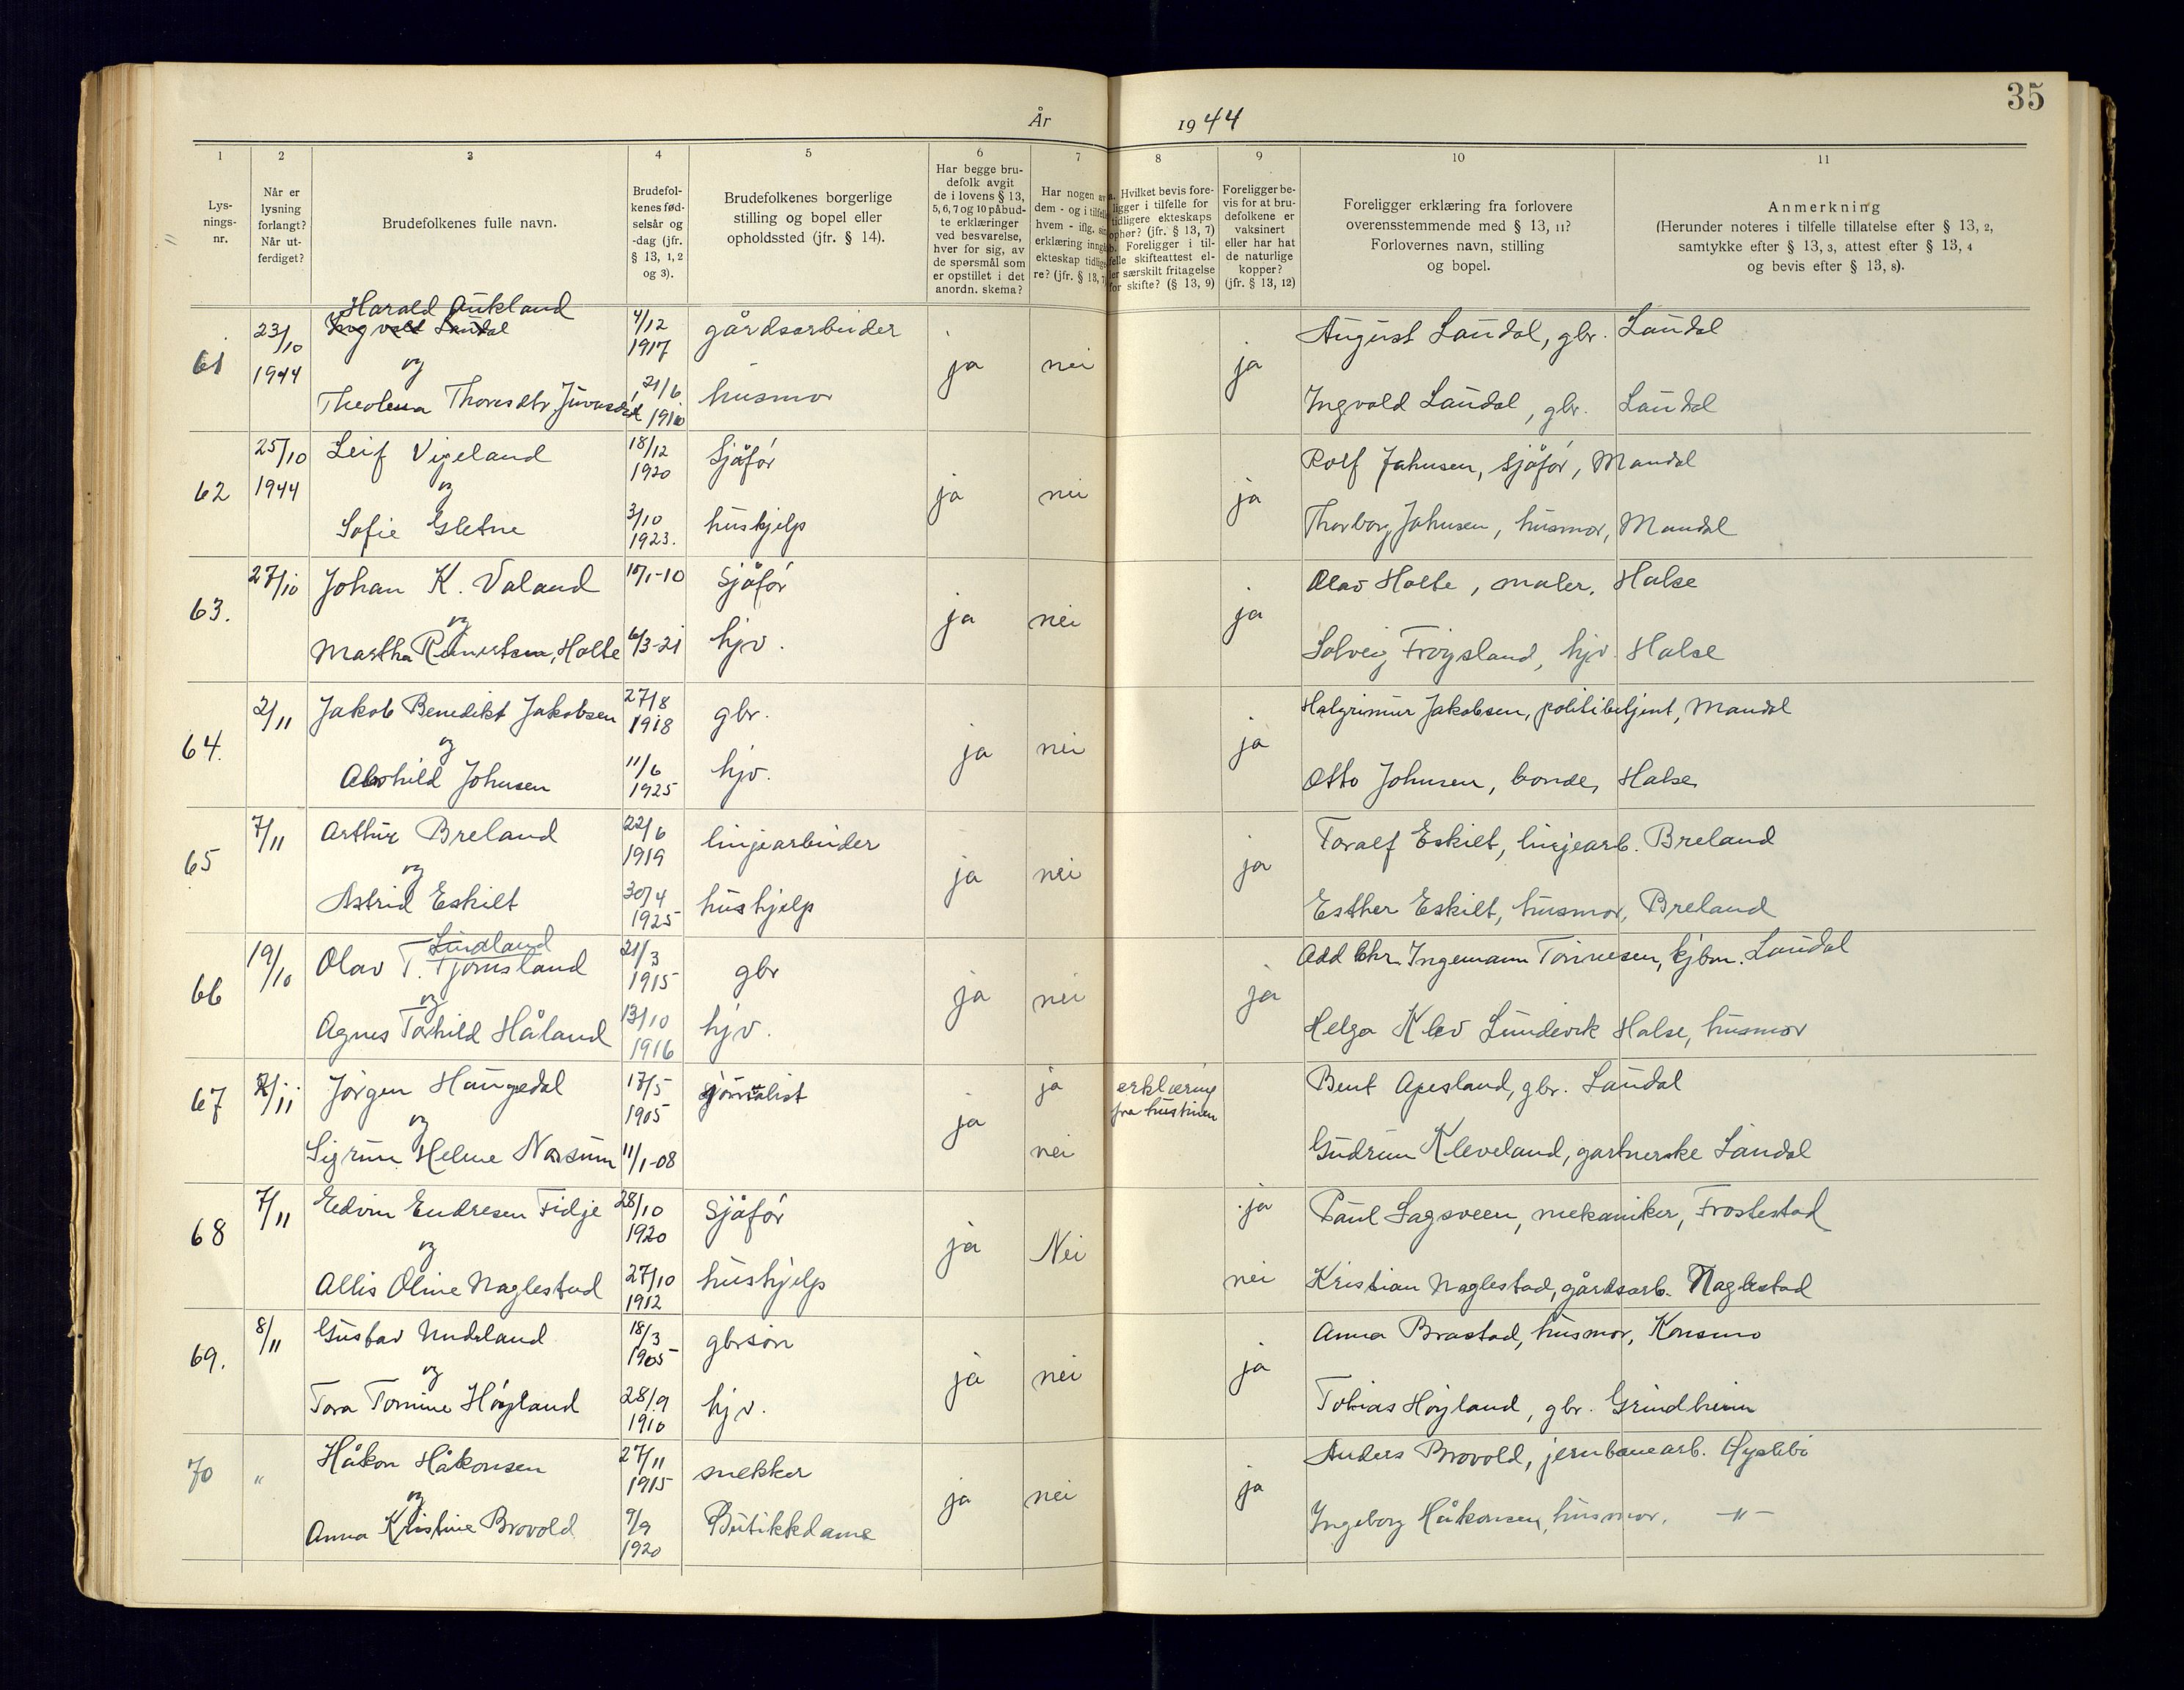 35
År 1944
1 2 3 4 5 6 7 8 9 10 11
Lys-
nings-
nr.
Når er
lysning
forlangt?
Når ut-
ferdiget?
Brudefolkenes fulle navn.
Brudefol-
kenes fød-
selsår og
-dag (jfr.
§ 13, 1, 2
og 3).
Brudefolkenes borgerlige
stilling og bopel eller
opholdssted (jfr. § 14).
Har begge bru-
defolk avgit
de i lovens § 13,
5, 6, 7 og 10 påbud-
te erklæringer
ved besvarelse,
hver for sig, av
de spørsmål som
er opstillet i det
anordn. skema?
Har nogen av
dem - og i tilfelle
hvem - iflg. sin
erklæring inngå
ekteskap tidlige
re? (jfr. § 13, 7
Hvilket bevis fore-
ligger i tilfelle for
tidligere ekteskaps
ophør? (jfr. § 13, 7)
Foreligger i til-
felle skifteattest el-
ler særskilt fritagelse
for skifte? (§ 13, 9)
Foreligger be-
vis for at bru-
defolkene er
vaksinert
eller har hat
de naturlige
kopper?
(jfr. § 13, 12)
Foreligger erklæring fra forlovere
overensstemmende med § 13, 11?
Forlovernes navn, stilling
og bopel.
Anmerkning
(Herunder noteres i tilfelle tillatelse efter § 13, 2,
samtykke efter § 13, 3, attest efter § 13, 4
og bevis efter § 13, 8).
Harald Aukland
61 23/10 1944 Ingvald Laudal 4/12 1917 gårdsarbeider ja nei ja August Laudal, gbr. Laudal
og
Theolena Thoresdtr. 21/6 1910 husmor Ingvald Laudal, gbr. Laudal
62 25/10 1944 Leif Vigeland 18/12 1920 Sjåfør ja nei ja Rolf Johnsen, sjåfør, Mandal
og
Sofie Gletne 3/10 1923. hushjelp Thorborg Johnsen, husmor, Mandal
63. 27/10 Johan K. Valand 10/1-10 Sjåfør ja nei ja Olav Holte, maler, Halse
og
Martha Reinertsen, Holte 6/3-21 hjv. Solveig Frøysland, hjv. Halse
64. 2/11 Jakob Benedikt Jakobsen 27/8 1918 gbr. ja nei ja Halgrimur Jakobsen, politibetjent, Mandal
og
Alvhild Johnsen 11/6 1925 hjv. Otto Johnsen, bonde, Halse
65 7/11 Arthur Breland 22/6 1919 linjearbeider ja nei ja Toralf Eskilt, linjearb. Breland
og
Astrid Eskilt 30/4 1925 hushjelp Esther Eskilt, husmor, Breland
Lindland
66 19/10 Olav T. Tjomsland 21/3 1915 gbr ja nei ja Add Chr. Ingemann Tønnesen, kjbm. Laudal
og
Agnes Torhild Håland 13/10 1916 hjv. Helga Klev Lundevik Halse, husmor
67 2/11 Jörgen Haugedal 17/5 1905 journalist ja ja erklæring fra hustruen Bent Apesland, gbr. Laudal
og
Sigrun Helene Narsum 11/1-08 nei Gudrun Kleveland, gartnerske Laudal
68 7/11 Edvin Endresen Fidje 28/10 1920 Sjåför ja Nei ja Paul Sagsveen, mekaniker, Frostestad
og
Allis Oline Naglestad 27/10 1912 hushjelp nei Kristian Naglestad, gårdsarb. Naglestad
69. 8/11 Gustav Undeland 18/3 1905 gbrsön ja nei ja Anna Brastad, husmor, Konsmo
og
Tora Tomine Höyland 28/9 1910 hjv. Tobias Höyland, gbr. Grindheim
70 " Håkon Håkonsen 27/11 1915 snekker ja nei ja Anders Brovold, jernbanearb. Øyslebö
og
Anna Kristine Brovold 9/9 1920 Butikkdame Ingeborg Håkonsen, husmor, —"—